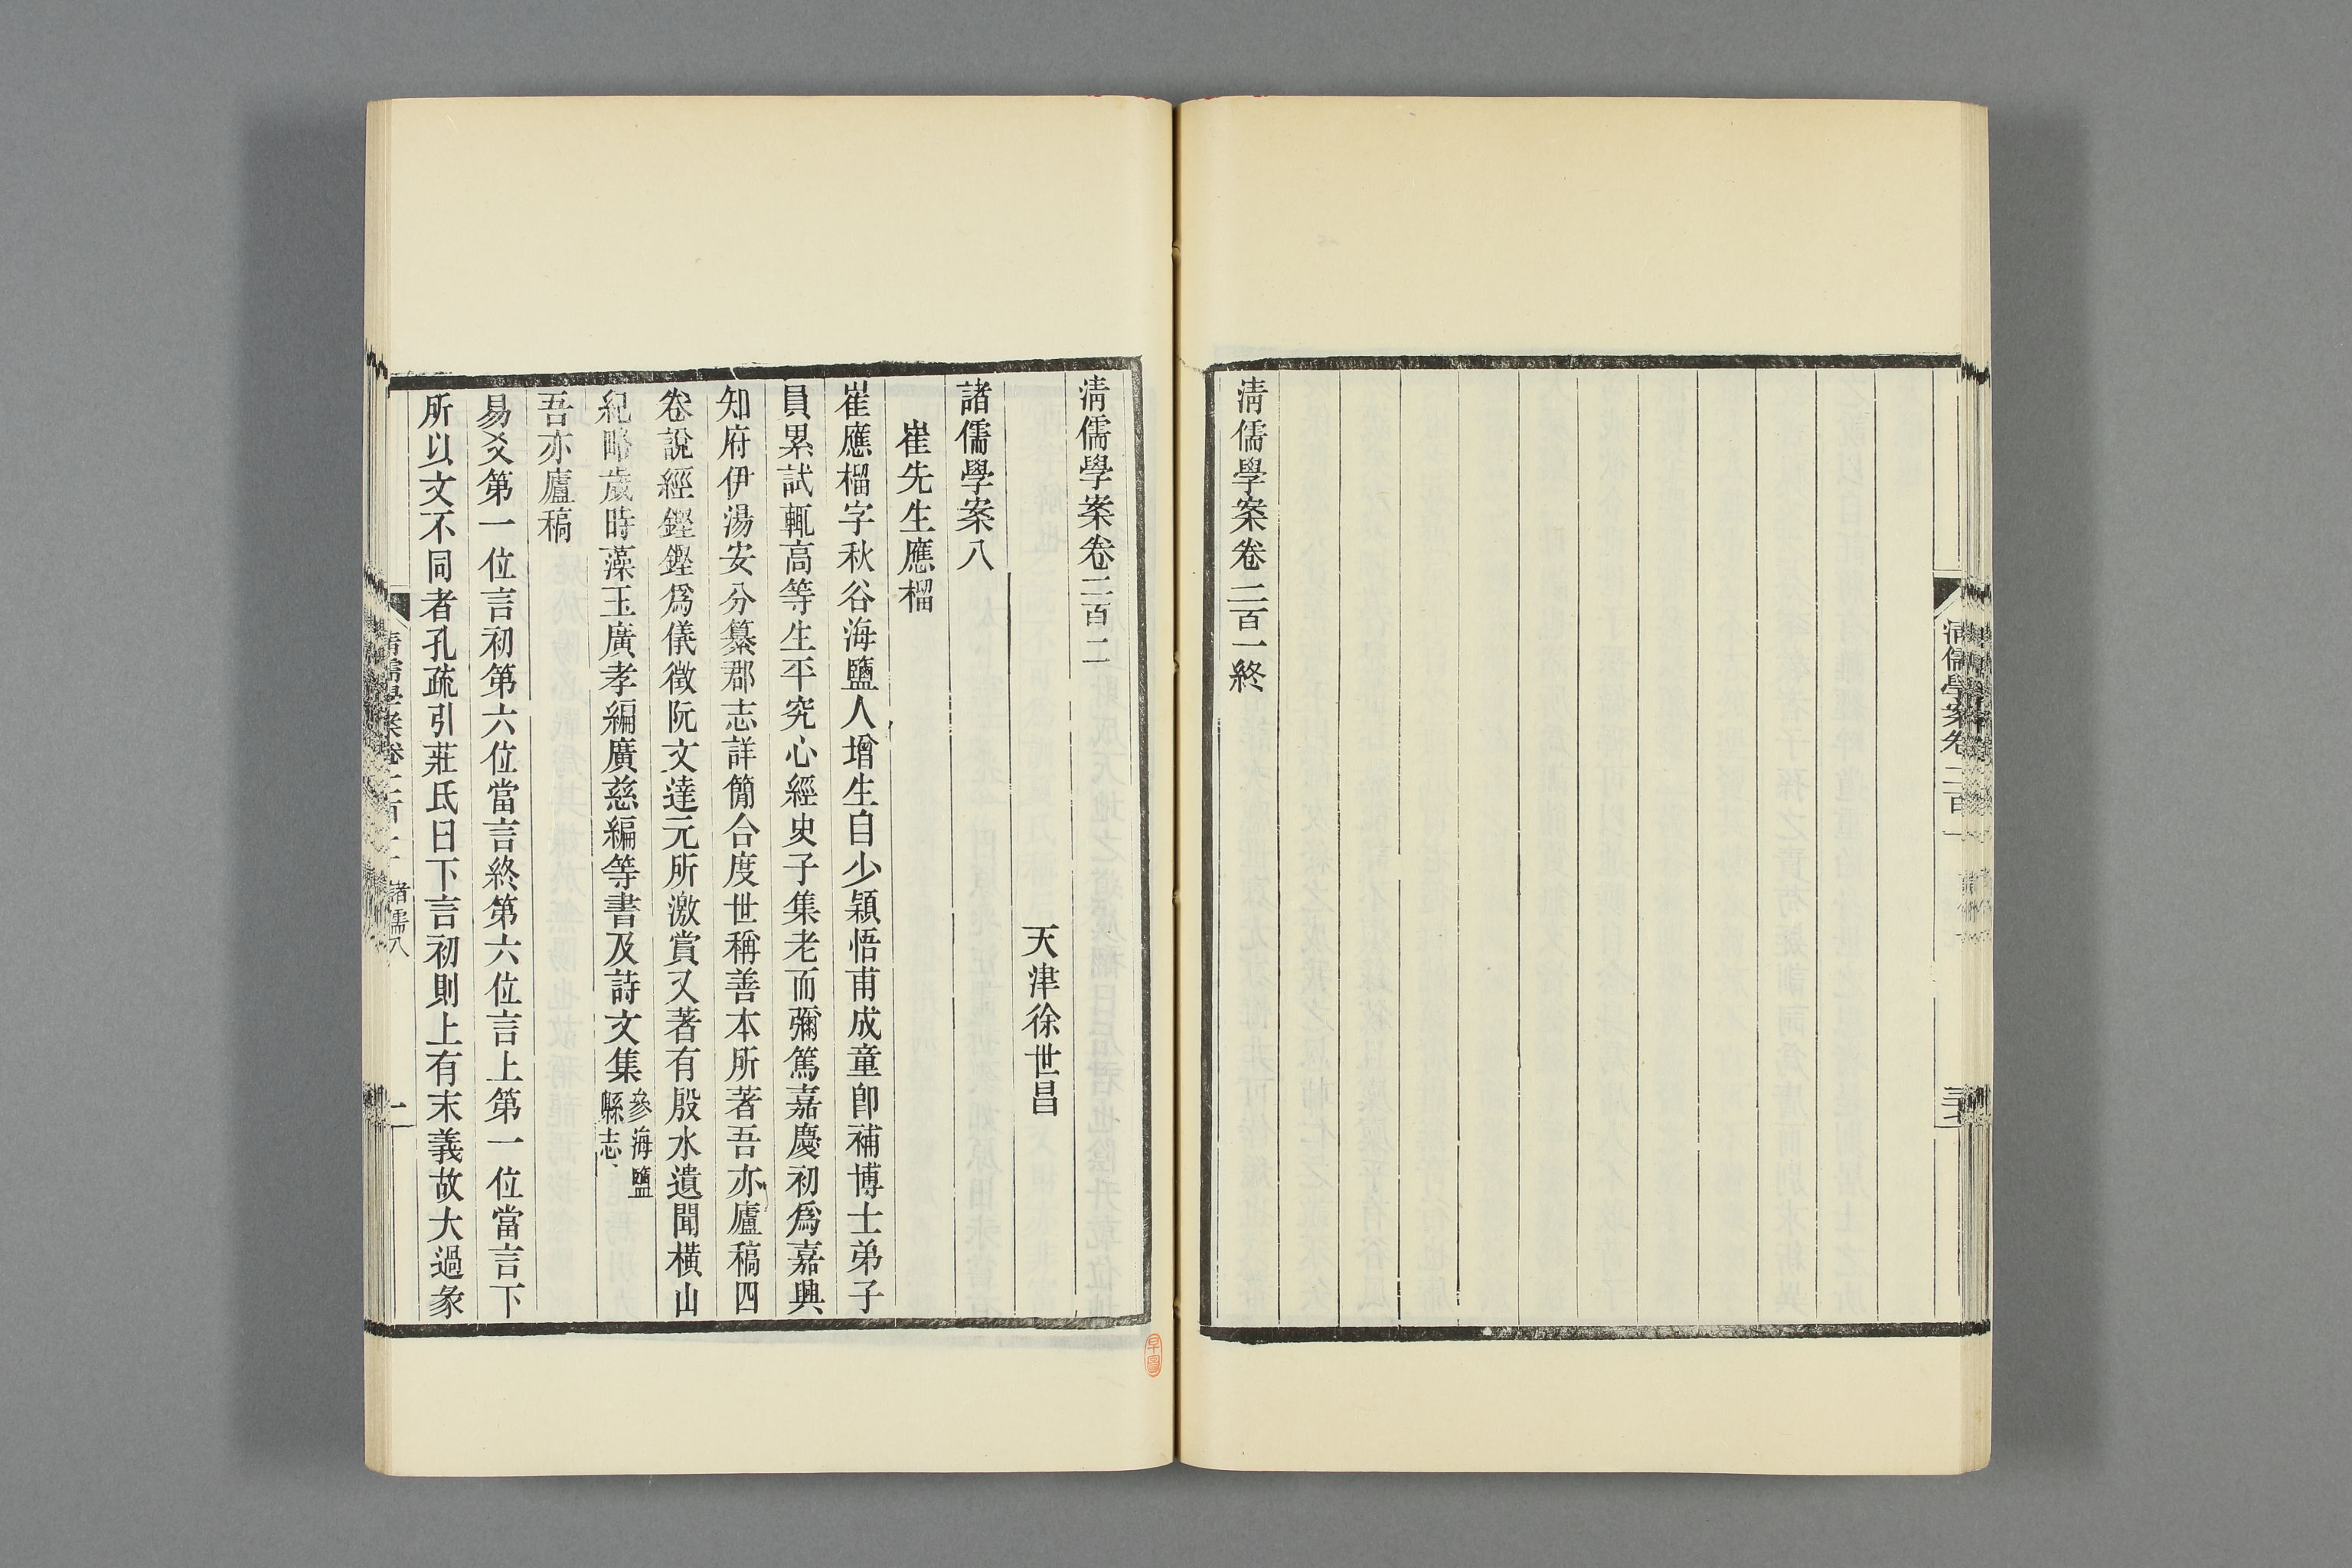 清儒學案卷二百一終
清儒學案卷二百一
清儒學案卷二百二
天津徐世昌
諸儒學案八
崔先生應榴
崔應榴字秋谷海鹽人增生自少穎悟甫成童卽補博士弟子
員累試輒高等生平究心經史子集老而彌篤嘉慶初爲嘉興
知府伊湯安分纂郡志詳簡合度世稱善本所著吾亦廬稿四
卷說經鏗鏗爲儀徵阮文達元所激賞又著有殷水遺聞橫山
紀略歲時藻玉廣孝編廣慈編等書及詩文集參海鹽
縣志
吾亦廬稿
易爻第一位言初第六位當言終第六位言上第一位當言下
所以文不同者孔疏引莊氏曰下言初則上有末義故大過彖
諸儒八